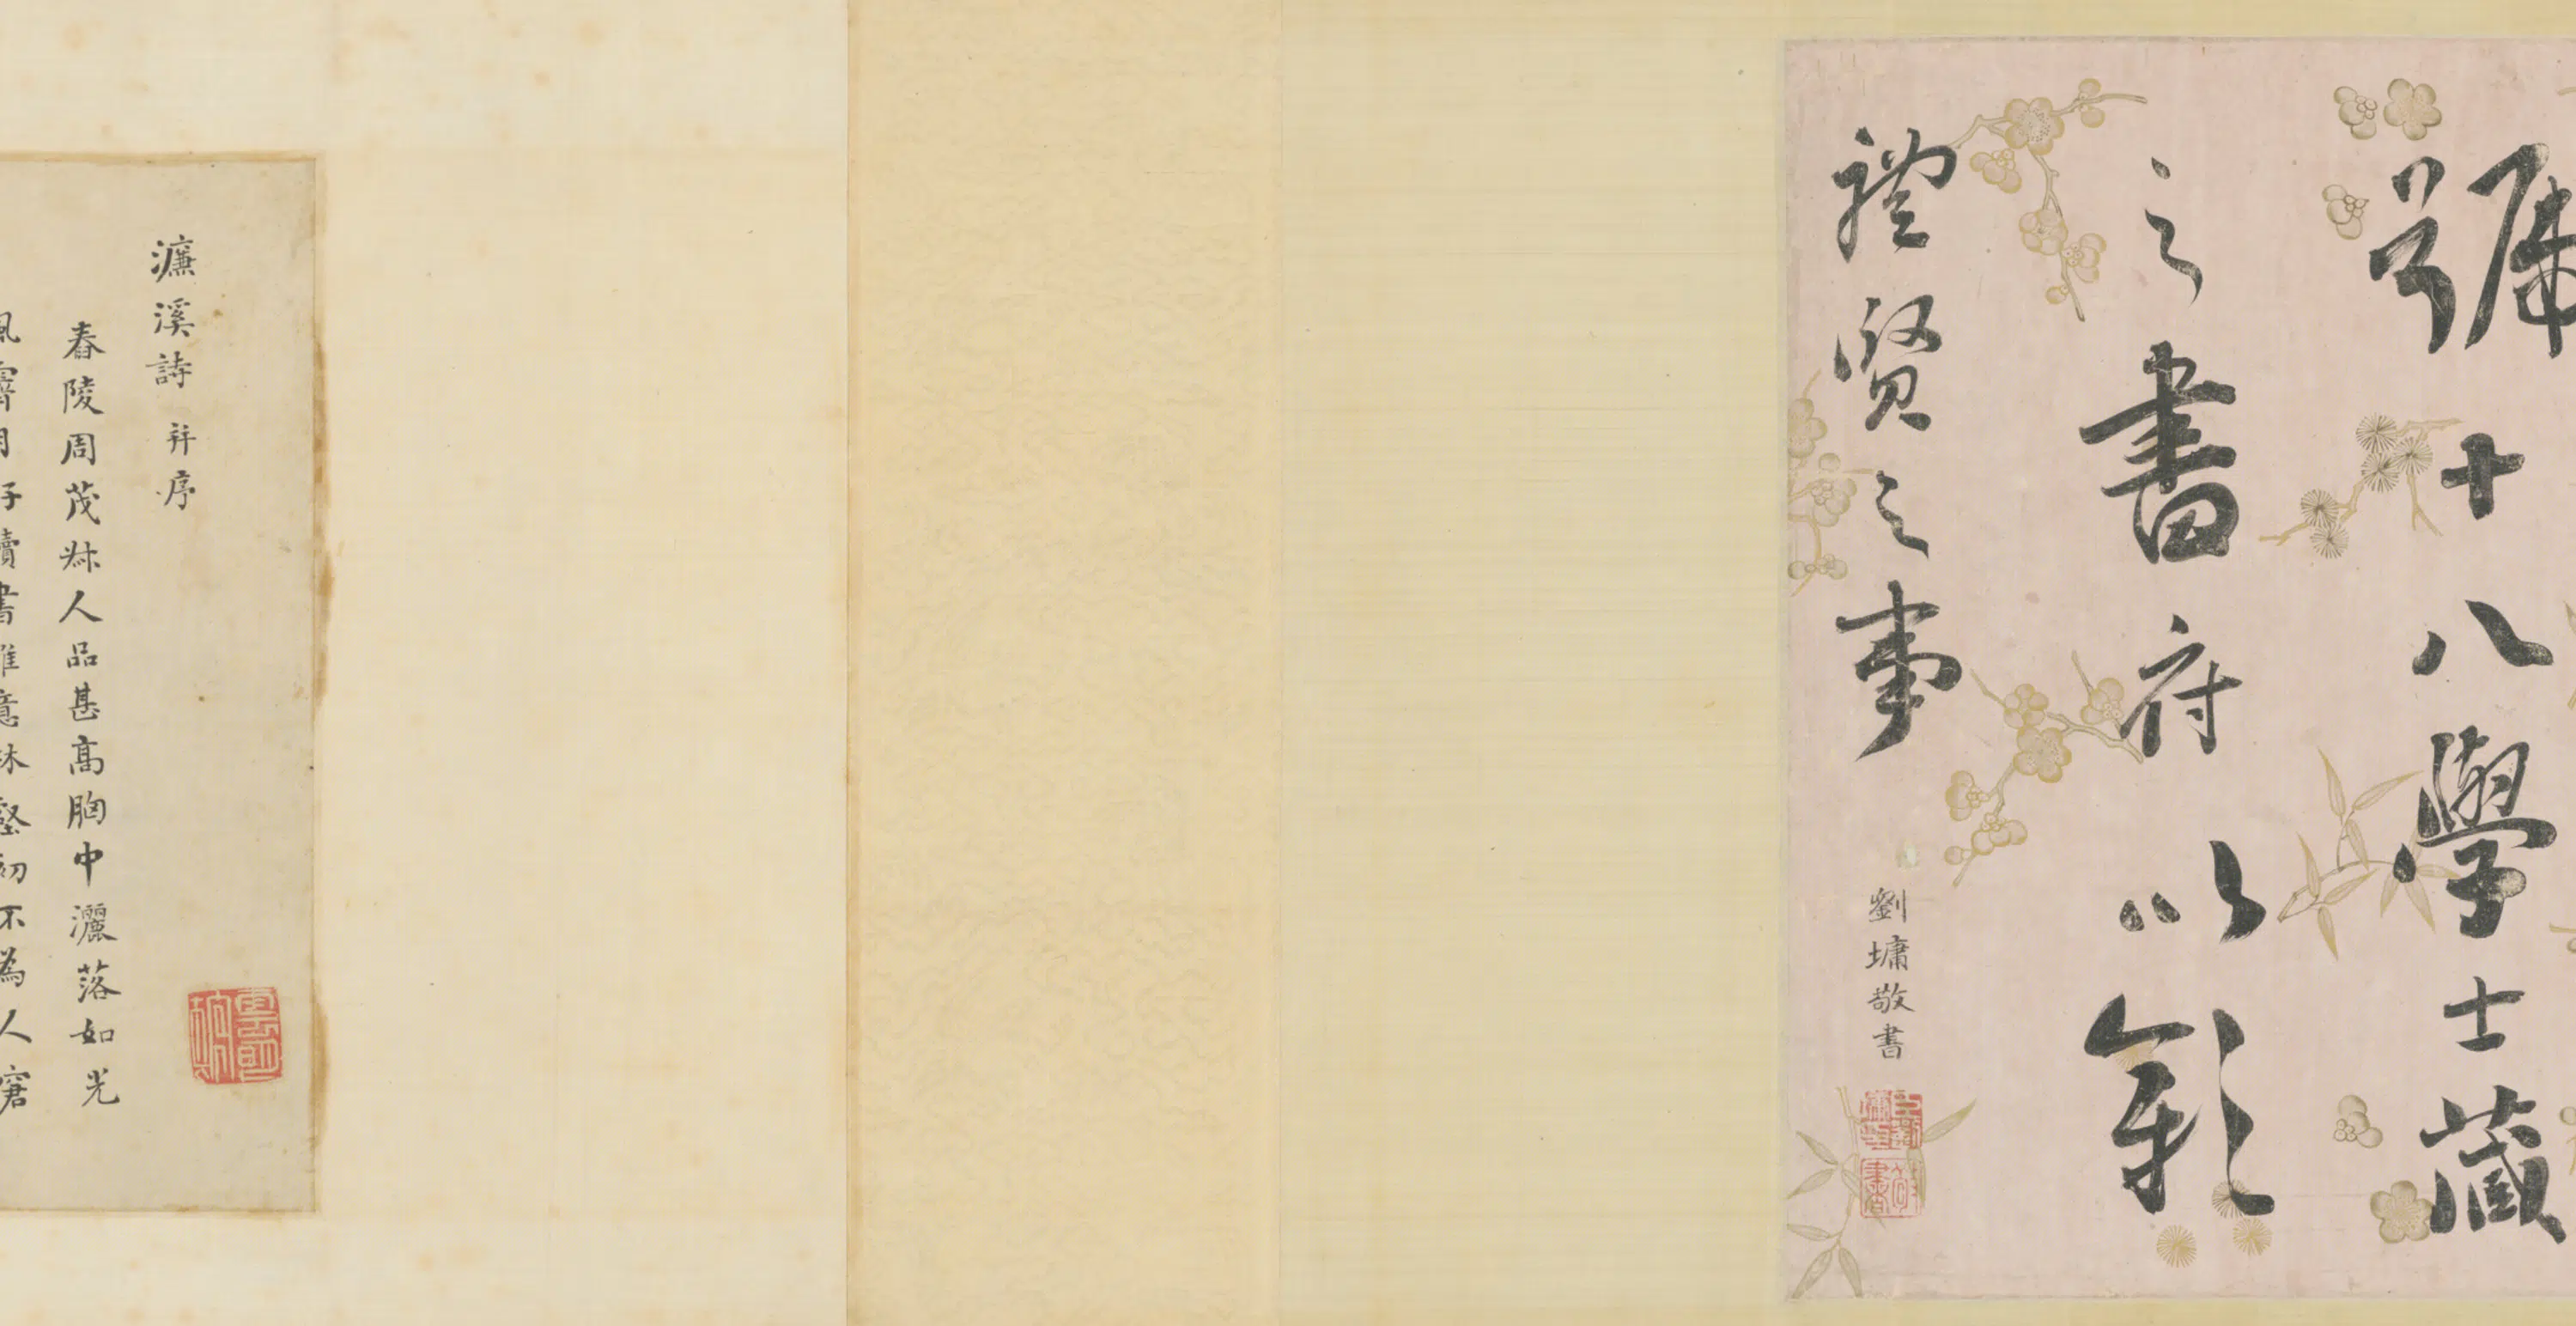 號十八學士藏
之書府以彰
禮賢之事
劉墉敬書
濂溪詩并序
舂陵周茂叔人品甚高胸中灑落如光
風霽月好讀書雅意林壑初不為人窘